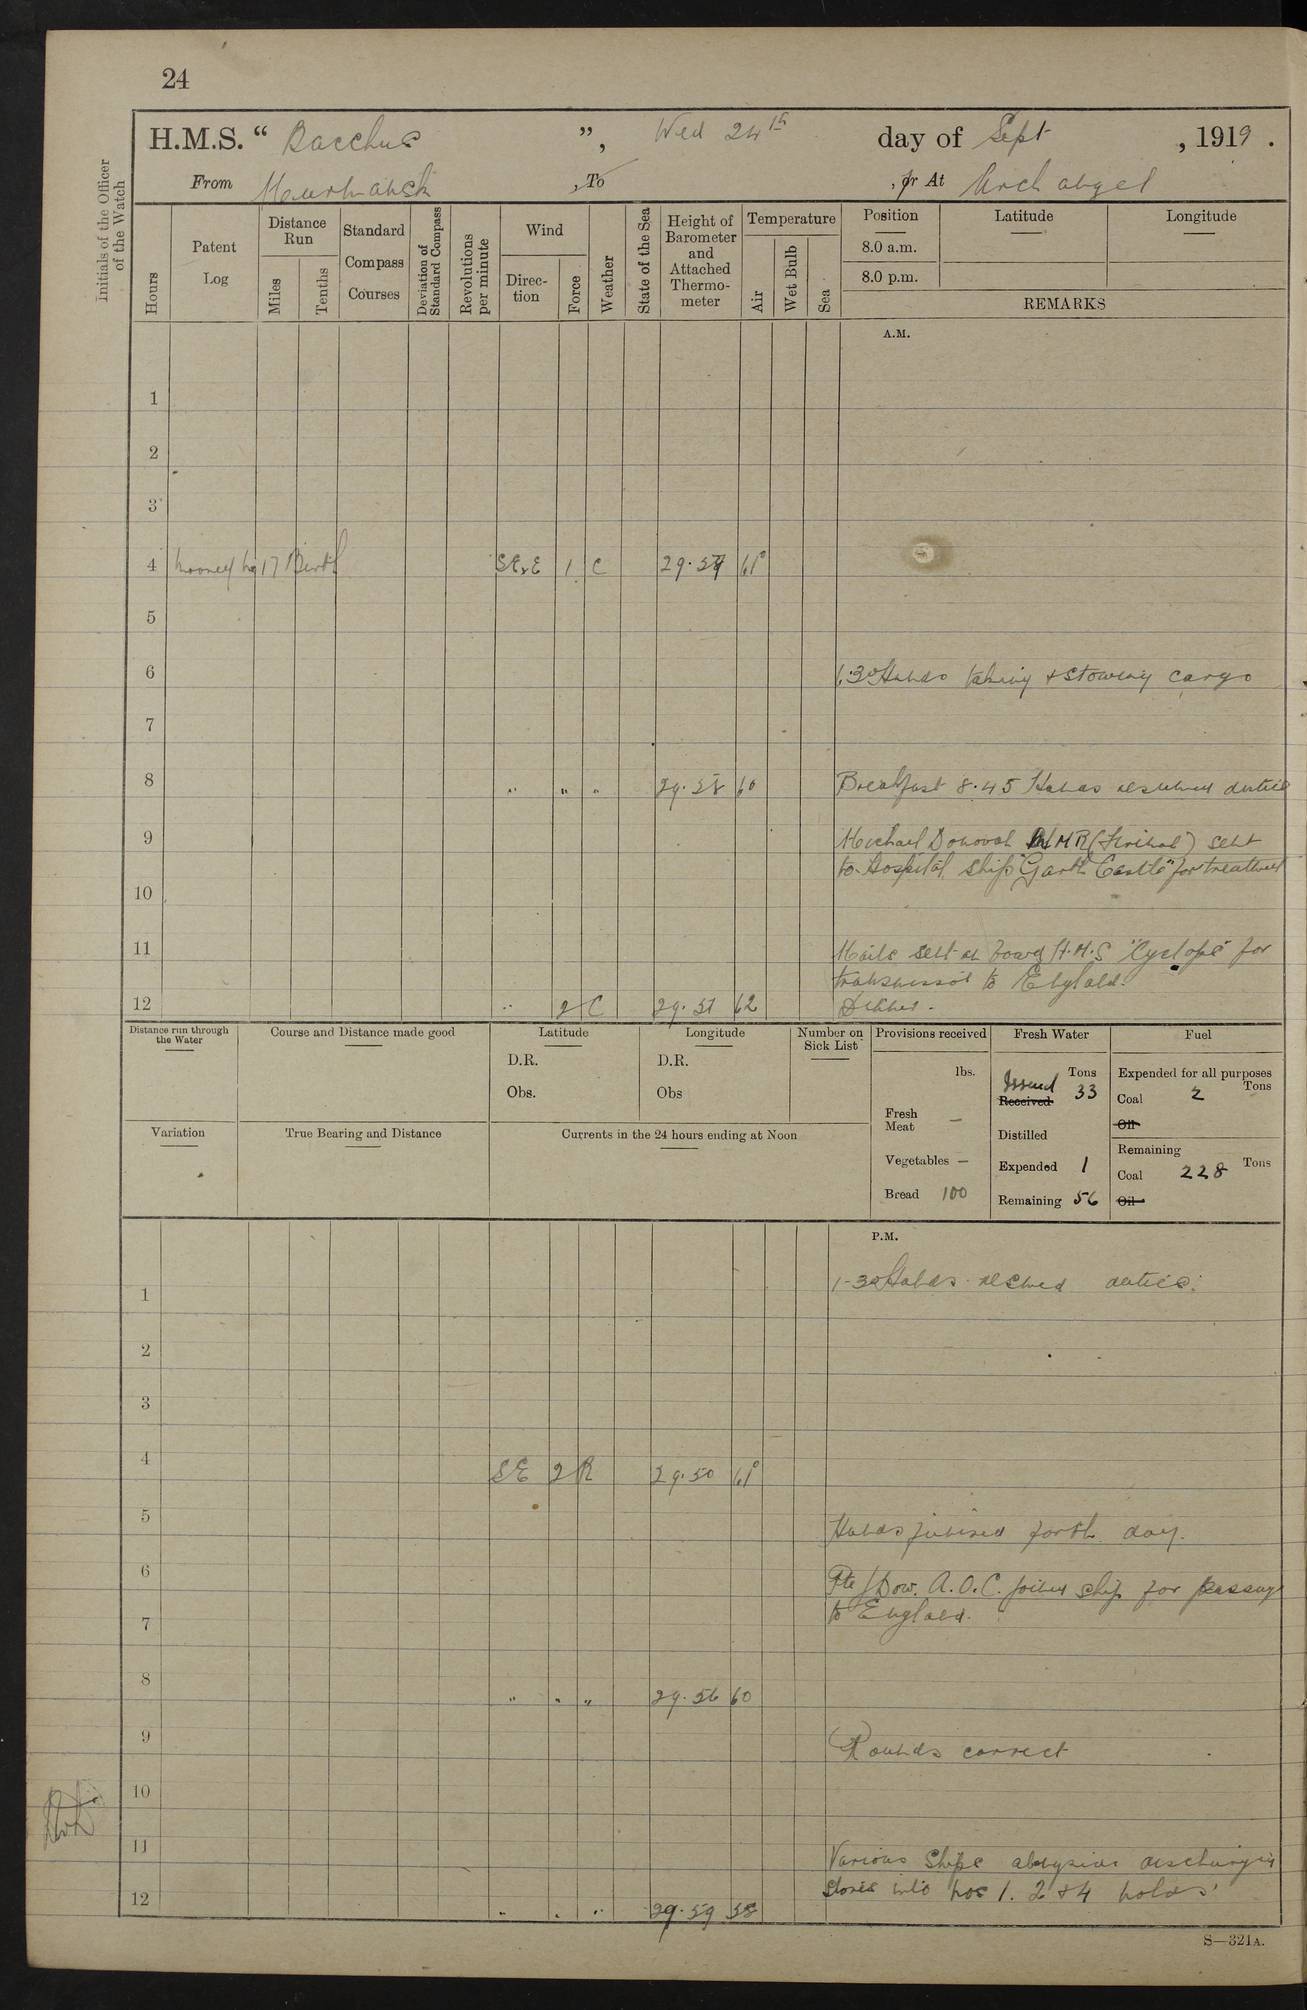 24
H.M.S. “ Bacchus ”, Wed 24th day of Sept , 1919 .
From Murmansk , To , or At Archangel
Initials of the Officer of the Watch
Hours
Patent Log
Distance Run
Miles
Tenths
Standard Compass Courses
Deviation of Standard Compass
Revolutions per minute
Wind
Direc-tion
Force
Weather
State of the Sea
Height of Barometer and Attached Thermo-meter
Temperature
Air
Wet Bulb
Sea
Position
Latitude
Longitude
8.0 a.m.
8.0 p.m.
REMARKS
A.M.
1
2
3
4 Moored No 17 Berth SExE 1 C 29.59 61°
5
6 1.30 Hands taking & stowing cargo
7
8 " " " 29.58 60 Breakfast 8.45 Hands resumed duties
9 Michael Donovan MMR (Fireman) sent
to Hospital Ship "Garth Castle" for treatment
10
11 Mails sent on board H.M.S "Cyclops" for
transmission to England.
12 " 2 C 29.51 62 Dinner.
Distance run through the Water
Course and Distance made good
Latitude
D.R.
Obs.
Longitude
D.R.
Obs
Number on Sick List
Provisions received
lbs.
Fresh Meat —
Vegetables —
Bread 100
Fresh Water
Tons
Issued Received 33
Distilled
Expended 1
Remaining 56
Fuel
Expended for all purposes
Tons
Coal 2
Oil
Remaining
Tons
Coal 228
Oil
Variation
True Bearing and Distance
Currents in the 24 hours ending at Noon
P.M.
1 1-30 Hands resumed duties.
2
3
4 SE 2 R 29.50 61°
5 Hands finished for the day.
6 Pte J Dow. A.O.C. joined ship for passage
to England.
7
8 " " " 29.56 60
9 Rounds correct
10
11 Various Ships alongside discharging
stores into nos 1. 2 & 4 holds
12 " " " 29.59 58
S—321A.